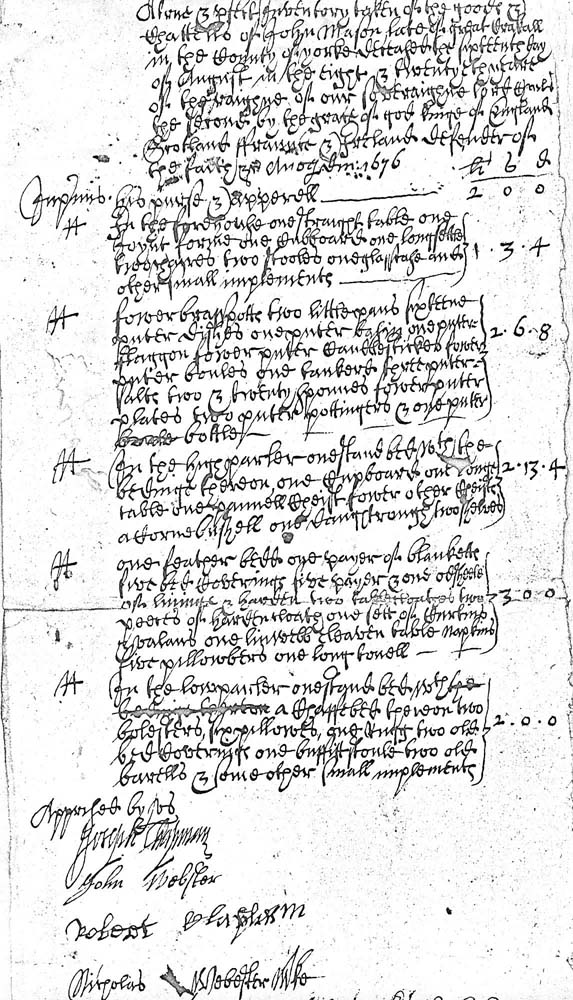 A true & p'fitt Inventory taken of the goods &
Chattells of John Mason late of Great
in the County of yorke deceased the sixteenth day
of August in the eight & twenty the yeare
of the raighne of our soveraighne lord Charles
the second by the grace of god kinge of England
Scotland ffraunce & Ireland defender of
the faith &c Anoq dm: 1676
li s d
Inprimis his purse & Apperell 2 0 0
It In the forehouse one straight table one
Joynt forme one Cubboard one longsettle
two chaires two stooles one glasscase and 1 · 3 · 4
other small implements
It fower brasspotts two little pans sixteene
puter dishes one puter basin one puter
fflaggon fower puter Candlestickes fower 2 · 6 · 8
puter boules one tankerd three puter
salts two & twenty spoones fower puter
plates two puter pottingers & one puter
bottle
It In the high parler one stand bed with the
bedinge thereon one Cupboard one longe 2 · 13 · 4
table one pannell Chest fower other Chists
a Cornebushell one two shelves
It one feather bedd one payer of blanketts
five bed Coverings five payer & one od sheete
of linninge & harden two tablecloathes two 3 0 0
peeces of hardencloath one sett of Curtins
& valans one eleaven table napkins
five pillowbers one long towell
It In the low parler one stand bed with
a Chaffebed thereon two
bolesters, six pillowes, one Rugg two old 2 · 0 · 0
bed Coverings one buffitt stoule two old
barells & some other small implements
Apprised by us
Joseph Chapman
John Webster
Robert
Nicholas Webster